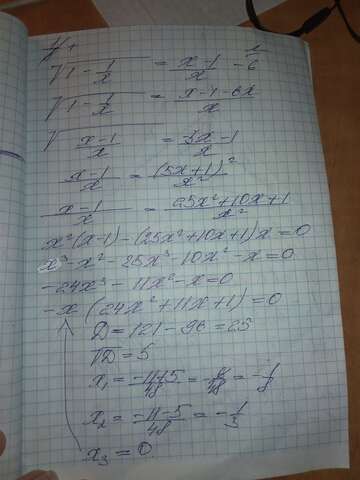 №1
√(1 - 1/x) = (x-1)/x - 6
√(1 - 1/x) = (x-1-6x)/x
√((x-1)/x) = (-5x-1)/x
(x-1)/x = (5x+1)²/x²
(x-1)/x = (25x²+10x+1)/x²
x²(x-1) - (25x²+10x+1)x = 0
x³ - x² - 25x³ - 10x² - x = 0
-24x³ - 11x² - x = 0
-x(24x² + 11x + 1) = 0
D = 121 - 96 = 25
√D = 5
x₁ = (-11+5)/48 = -6/48 = -1/8
x₂ = (-11-5)/48 = -1/3
x₃ = 0